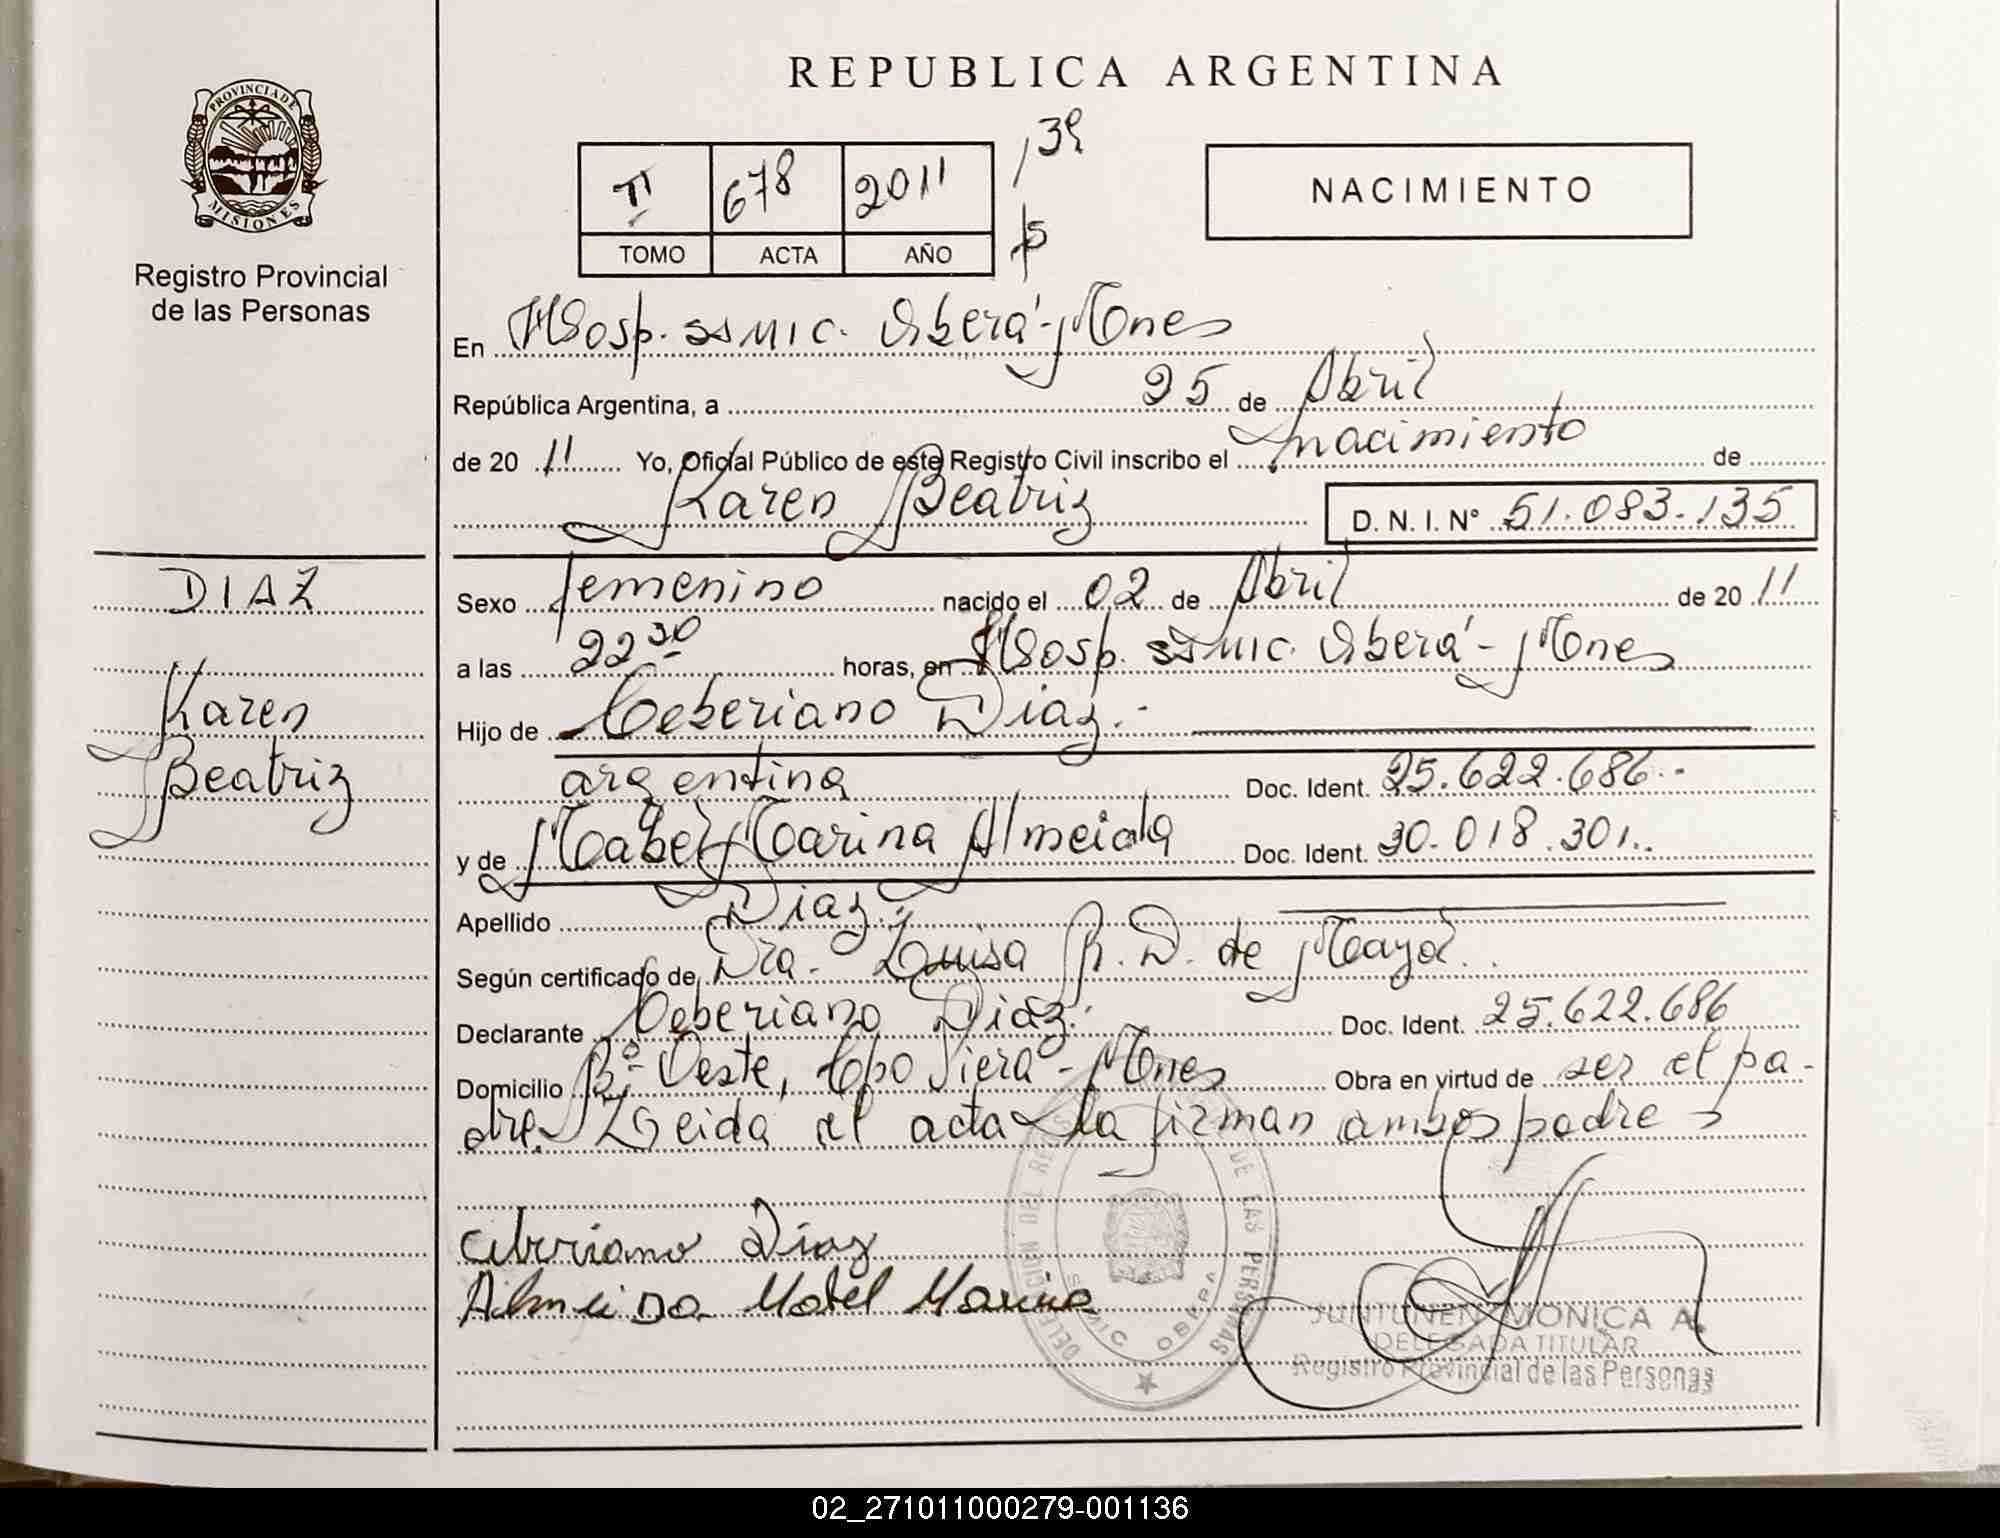 PROVINCIA DE
MISIONES
Registro Provincial
de las Personas
REPUBLICA ARGENTINA
678 2011
TOMO ACTA AÑO
NACIMIENTO
En Hosp. SSMIC. Oberá - Mnes
República Argentina, a 25 de Abril
de 20 11 Yo, Oficial Público de este Registro Civil inscribo el nacimiento de
Karen Beatriz D. N. I. N° 51.083.135
DIAZ
Karen
Beatriz
Sexo femenino nacido el 02 de Abril de 20 11
a las 22 30 horas, en Hosp. SSMIC. Oberá - Mnes
Hijo de Ceberiano Diaz.-
argentina Doc. Ident. 25.622.686.-
y de Mabel Marina Almeida Doc. Ident. 30.018.301..
Apellido Diaz.
Según certificado de Dra. Luisa R. D. de Maya.
Declarante Ceberiano Diaz. Doc. Ident. 25.622.686
Domicilio Bº Oeste, Cpo Viera - Mnes Obra en virtud de ser el pa-
dre. Leida el acta la firman ambos padres
Ceberiano Diaz
Almeida Mabel Marina
DELEGACION DEL REGISTRO DE LAS PERSONAS
SMIC OBERA
JUNTUNEN MONICA A.
DELEGADA TITULAR
Registro Provincial de las Personas
02_271011000279-001136